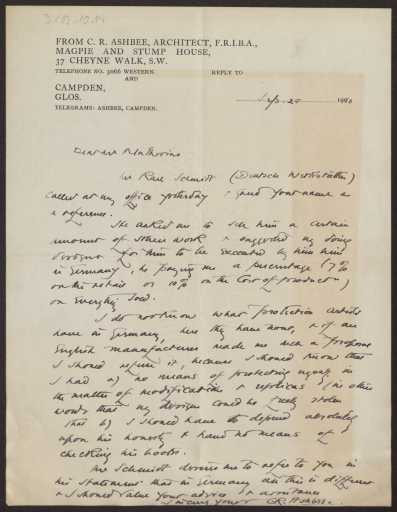 FROM C. R. ASHBEE, ARCHITECT, F.R.I.B.A.,
MAGPIE AND STUMP HOUSE,
37 CHEYNE WALK, S.W.
TELEPHONE NO. 3066 WESTERN. REPLY TO
AND
CAMPDEN,
GLOS.
TELEGRAMS: ASHBEE, CAMPDEN.
Sep. 20 190
Dear Mr Muthesius
Mr Karl Schmidt (Deutsche Werkstätten)
called at my office yesterday & gave your name as
a reference.
He asked me to sell him a certain
amount of silver work & suggested my doing
designs for him to be executed by him
in Germany, he paying me a percentage (7%
on the retail or 10% on the cost of production)
on everything sold.
I do not know what protection artists
have in Germany, here they have none, & if an
English manufacturer made me such a proposal
I should refuse it because I should know that
I had a) no means of protecting myself in
the matter of modification & replicas (in other
words that my designs could be freely stolen
that b) I should have to depend absolutely
upon his honesty & have no means of
checking his books.
Mr Schmidt desires me to refer to you in
his statement that in Germany all this is different
& I should value your advice & assistance
Sincerely yours CR Ashbee.